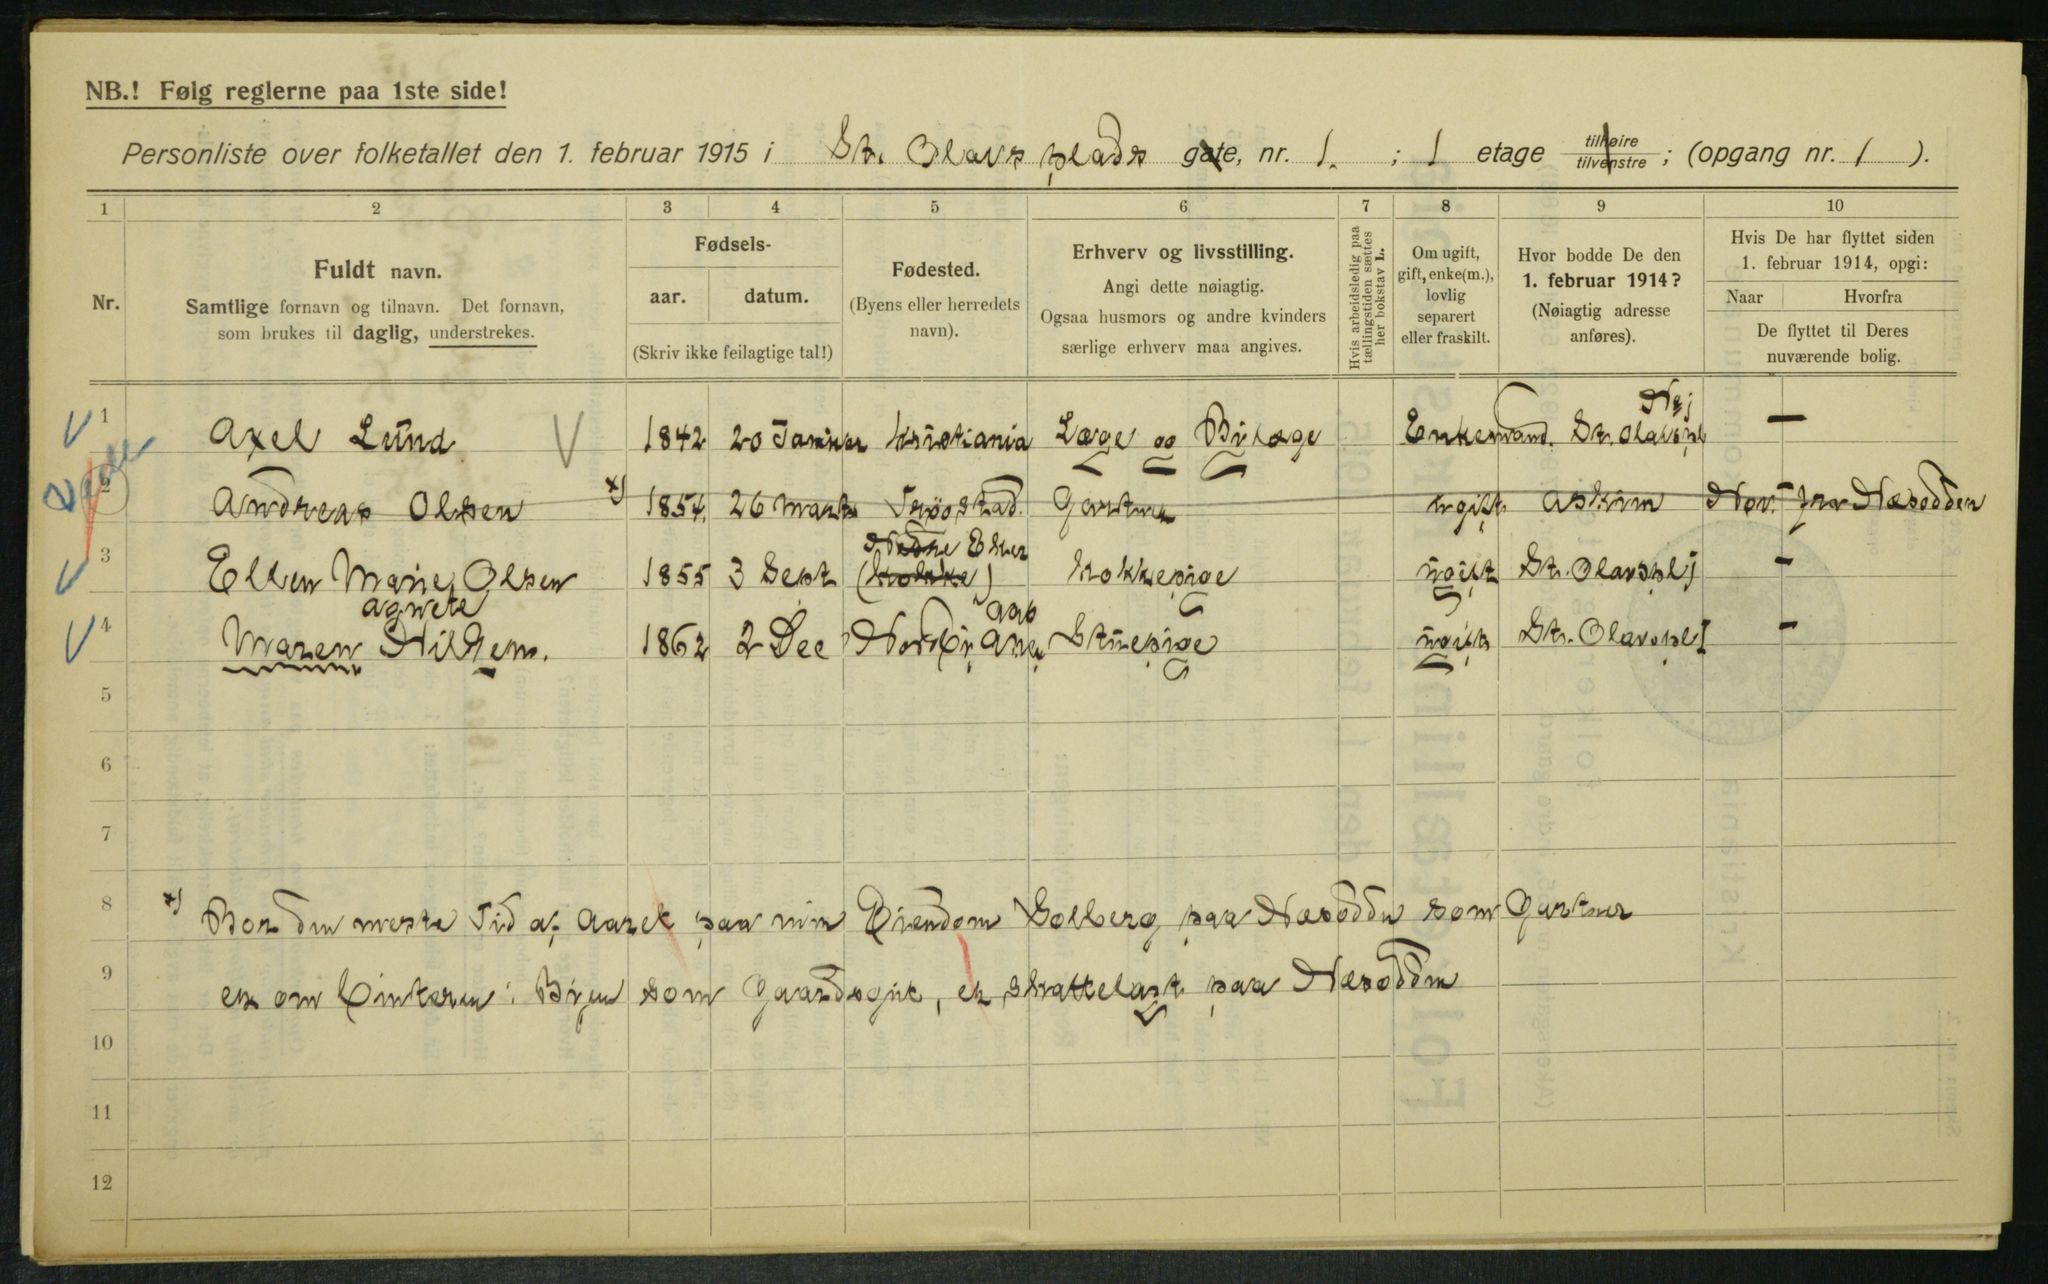 NB.! Følg reglerne paa 1ste side!
Personliste over folketallet den 1. februar 1915 i St. Olavs plads gate, nr. 1. ; 1 etage tilhøire tilvenstre ; (opgang nr. 1 ).
1 2 3 4 5 6 7 8 9 10
Nr.
Fuldt navn.
Samtlige fornavn og tilnavn. Det fornavn,
som brukes til daglig, understrekes.
Fødsels-
aar. datum.
(Skriv ikke feilagtige tal!)
Fødested.
(Byens eller herredets
navn).
Erhverv og livsstilling.
Angi dette nøiagtig.
Ogsaa husmors og andre kvinders
særlige erhverv maa angives.
Hvis arbeidsledig paa
tællingstiden sættes
her bokstav L.
Om ugift,
gift, enke(m.),
lovlig
separert
eller fraskilt.
Hvor bodde De den
1. februar 1914?
(Nøiagtig adresse
anføres).
Hvis De har flyttet siden
1. februar 1914, opgi:
Naar Hvorfra
De flyttet til Deres
nuværende bolig.
1 Axel Lund 1842 20 Januar Kristiania Læge og Bylæge Enkemand. St. Olavspl —
2 Andreas Olsen x) 1854. 26 Marts Trøostad. Gartner ugift Askim Nov. fra Næsodden
Nedre Eker
3 Ellen Marie Olsen 1855 3 Sept Kokkepige ugift St. Olavspl 1 -
Agnete
4 Maren 1862 2 Dec Stuepige ugift St. Olavspl 1 -
5
6
7
8 x) Bor den meste Tid af Aaret paa min Eiendom Solberg paa Næsodden som Gartner
9 er om Vinteren i Byen som Gaardsgut, er skattelagt paa Næsodden
10
11
12